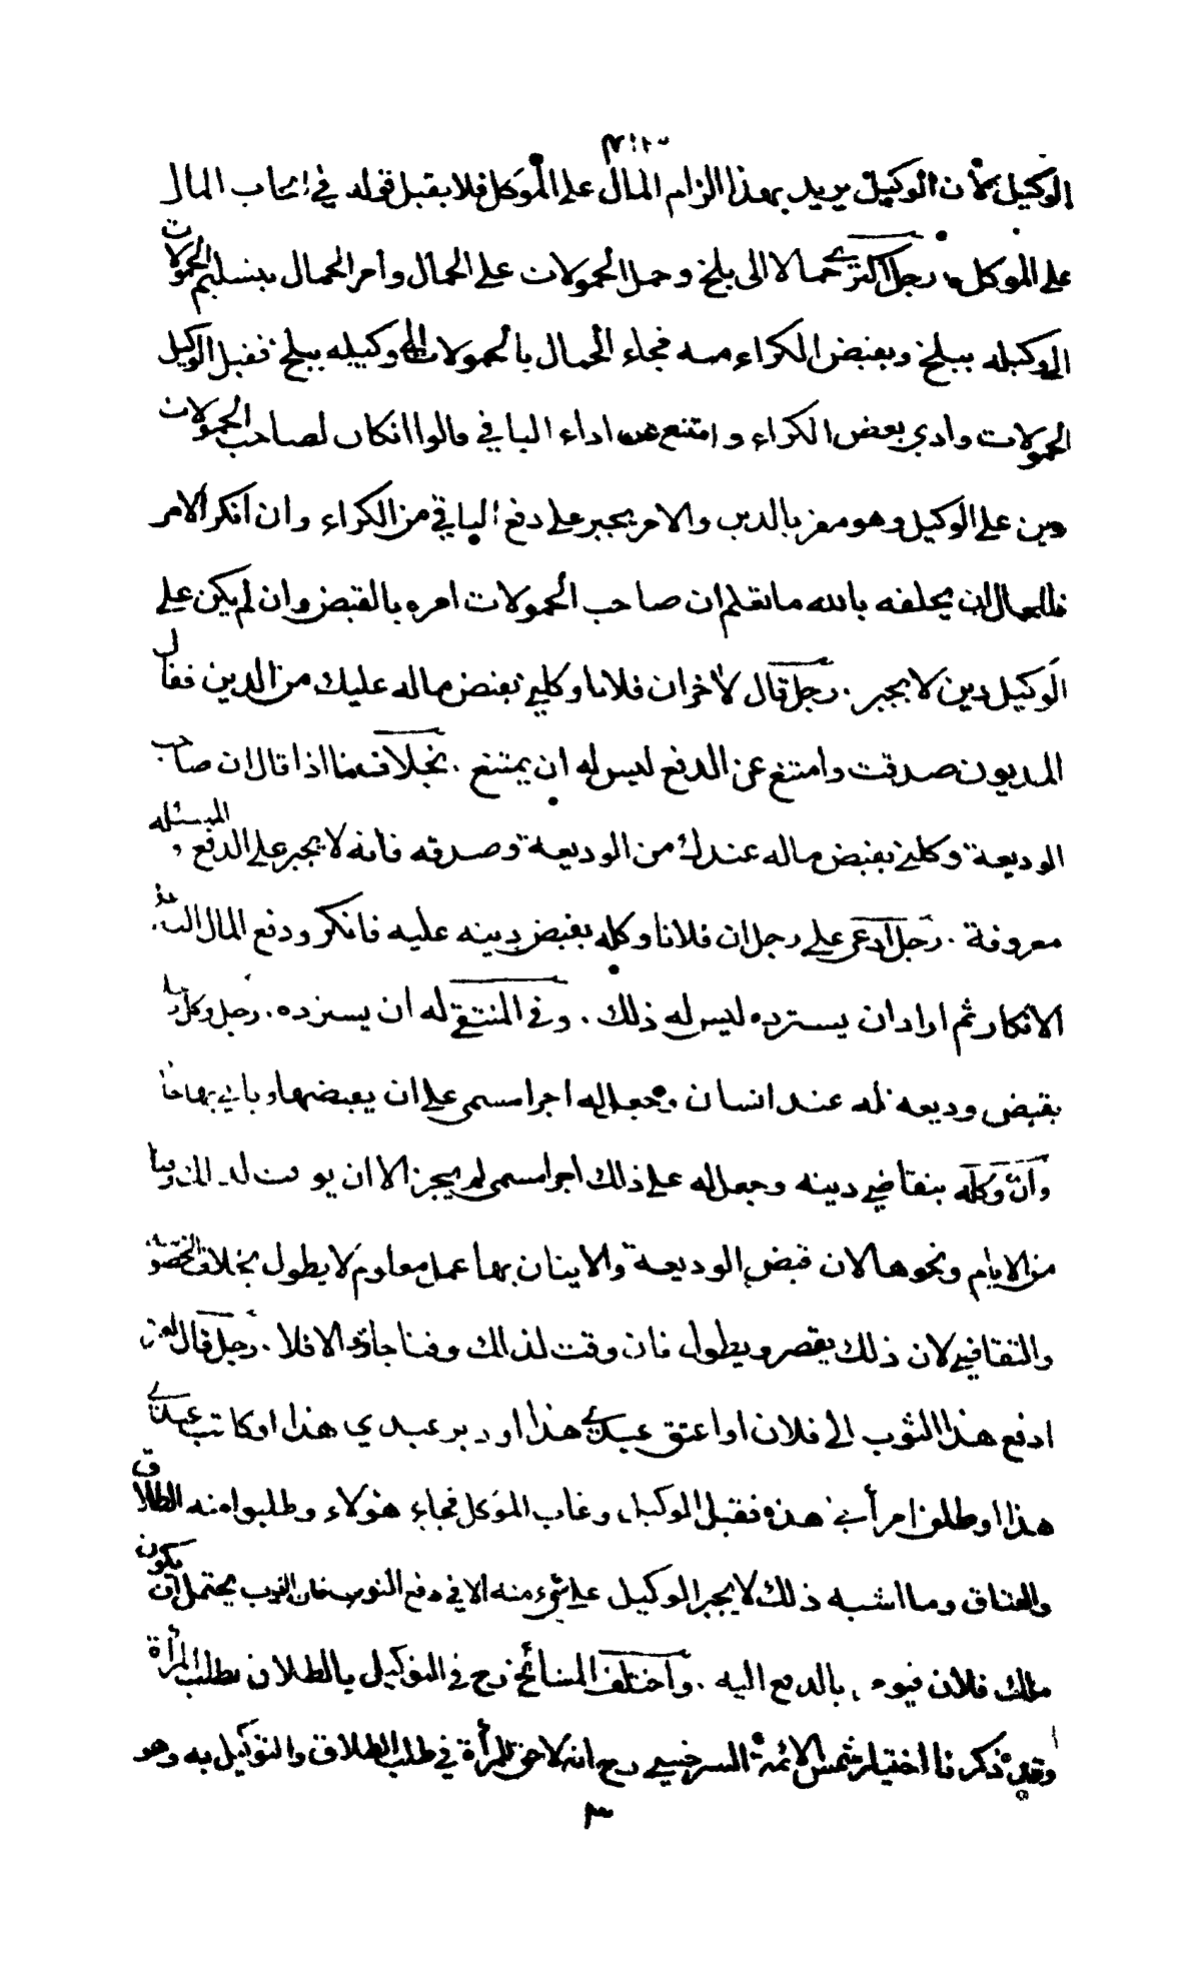 الوكيل لأن الوكيل يريد بهذا الزام المال على الموكل فلا يقبل قوله في ايجاب المال
على الموكل رجل اكترى حمالا الى بلخ وحمل الحمولات على الحمال وأمر الحمال بتسليم الحمولات
الى وكيله ببلخ وبقبض الكراء منه فجاء الحمال بالحمولات الى وكيله ببلخ فقبل الوكيل
الحمولات وادى بعض الكراء وامتنع عن اداء الباقي قالوا ان كان لصاحب الحمولات
دين على الوكيل وهو مقر بالدين والامر يجبر على دفع الباقي من الكراء وان انكر الامر
فللحمال ان يحلفه بالله ما تعلم ان صاحب الحمولات امره بالقبض وان لم يكن على
الوكيل دين لا يجبر . رجل قال لآخر ان فلانا وكلني بقبض ماله عليك من الدين فقال
المديون صدقت وامتنع عن الدفع ليس له ان يمتنع . بخلاف ما اذا قال ان صاحب
الوديعة وكلني بقبض ماله عندك من الوديعة وصدقه فانه لا يجبر على الدفع والمسئلة
معروفة . رجل ادعى على رجل ان فلانا وكله بقبض دينه عليه فانكر ودفع المال اليه على
الانكار ثم اراد ان يسترده ليس له ذلك . وفي المنتقى له ان يسترده . رجل وكل رجلا
بقبض وديعة له عند انسان وجعل له اجرا مسمى على ان يقبضها وياتي بها جاز
وان وكله بتقاضي دينه وجعل له على ذلك اجرا مسمى لم يجز الا ان يوقت لذلك وقتا
من الايام ونحوها لان قبض الوديعة والاتيان بها عمل معلوم لا يطول بخلاف الخصومة
والتقاضي لان ذلك يقصر ويطول فان وقت لذلك وقتا جاز والا فلا . رجل قال لغيره
ادفع هذا الثوب الى فلان او اعتق عبدي هذا او دبر عبدي هذا او كاتب عبدي
هذا او طلق امرأتي هذه فقبل الوكيل وغاب الموكل فجاء هؤلاء وطلبوا منه الطلاق
والعتاق وما اشبه ذلك لا يجبر الوكيل على شيء منه الا في دفع الثوب فان الثوب يحتمل ان يكون
ملك فلان فيؤمر بالدفع اليه . واختلف المشائخ رح في التوكيل بالطلاق بطلب المرأة
وقد ذكرنا اختيار شمس الائمة السرخسي رح انه لا حق للمرأة في طلب الطلاق والتوكيل به وهو